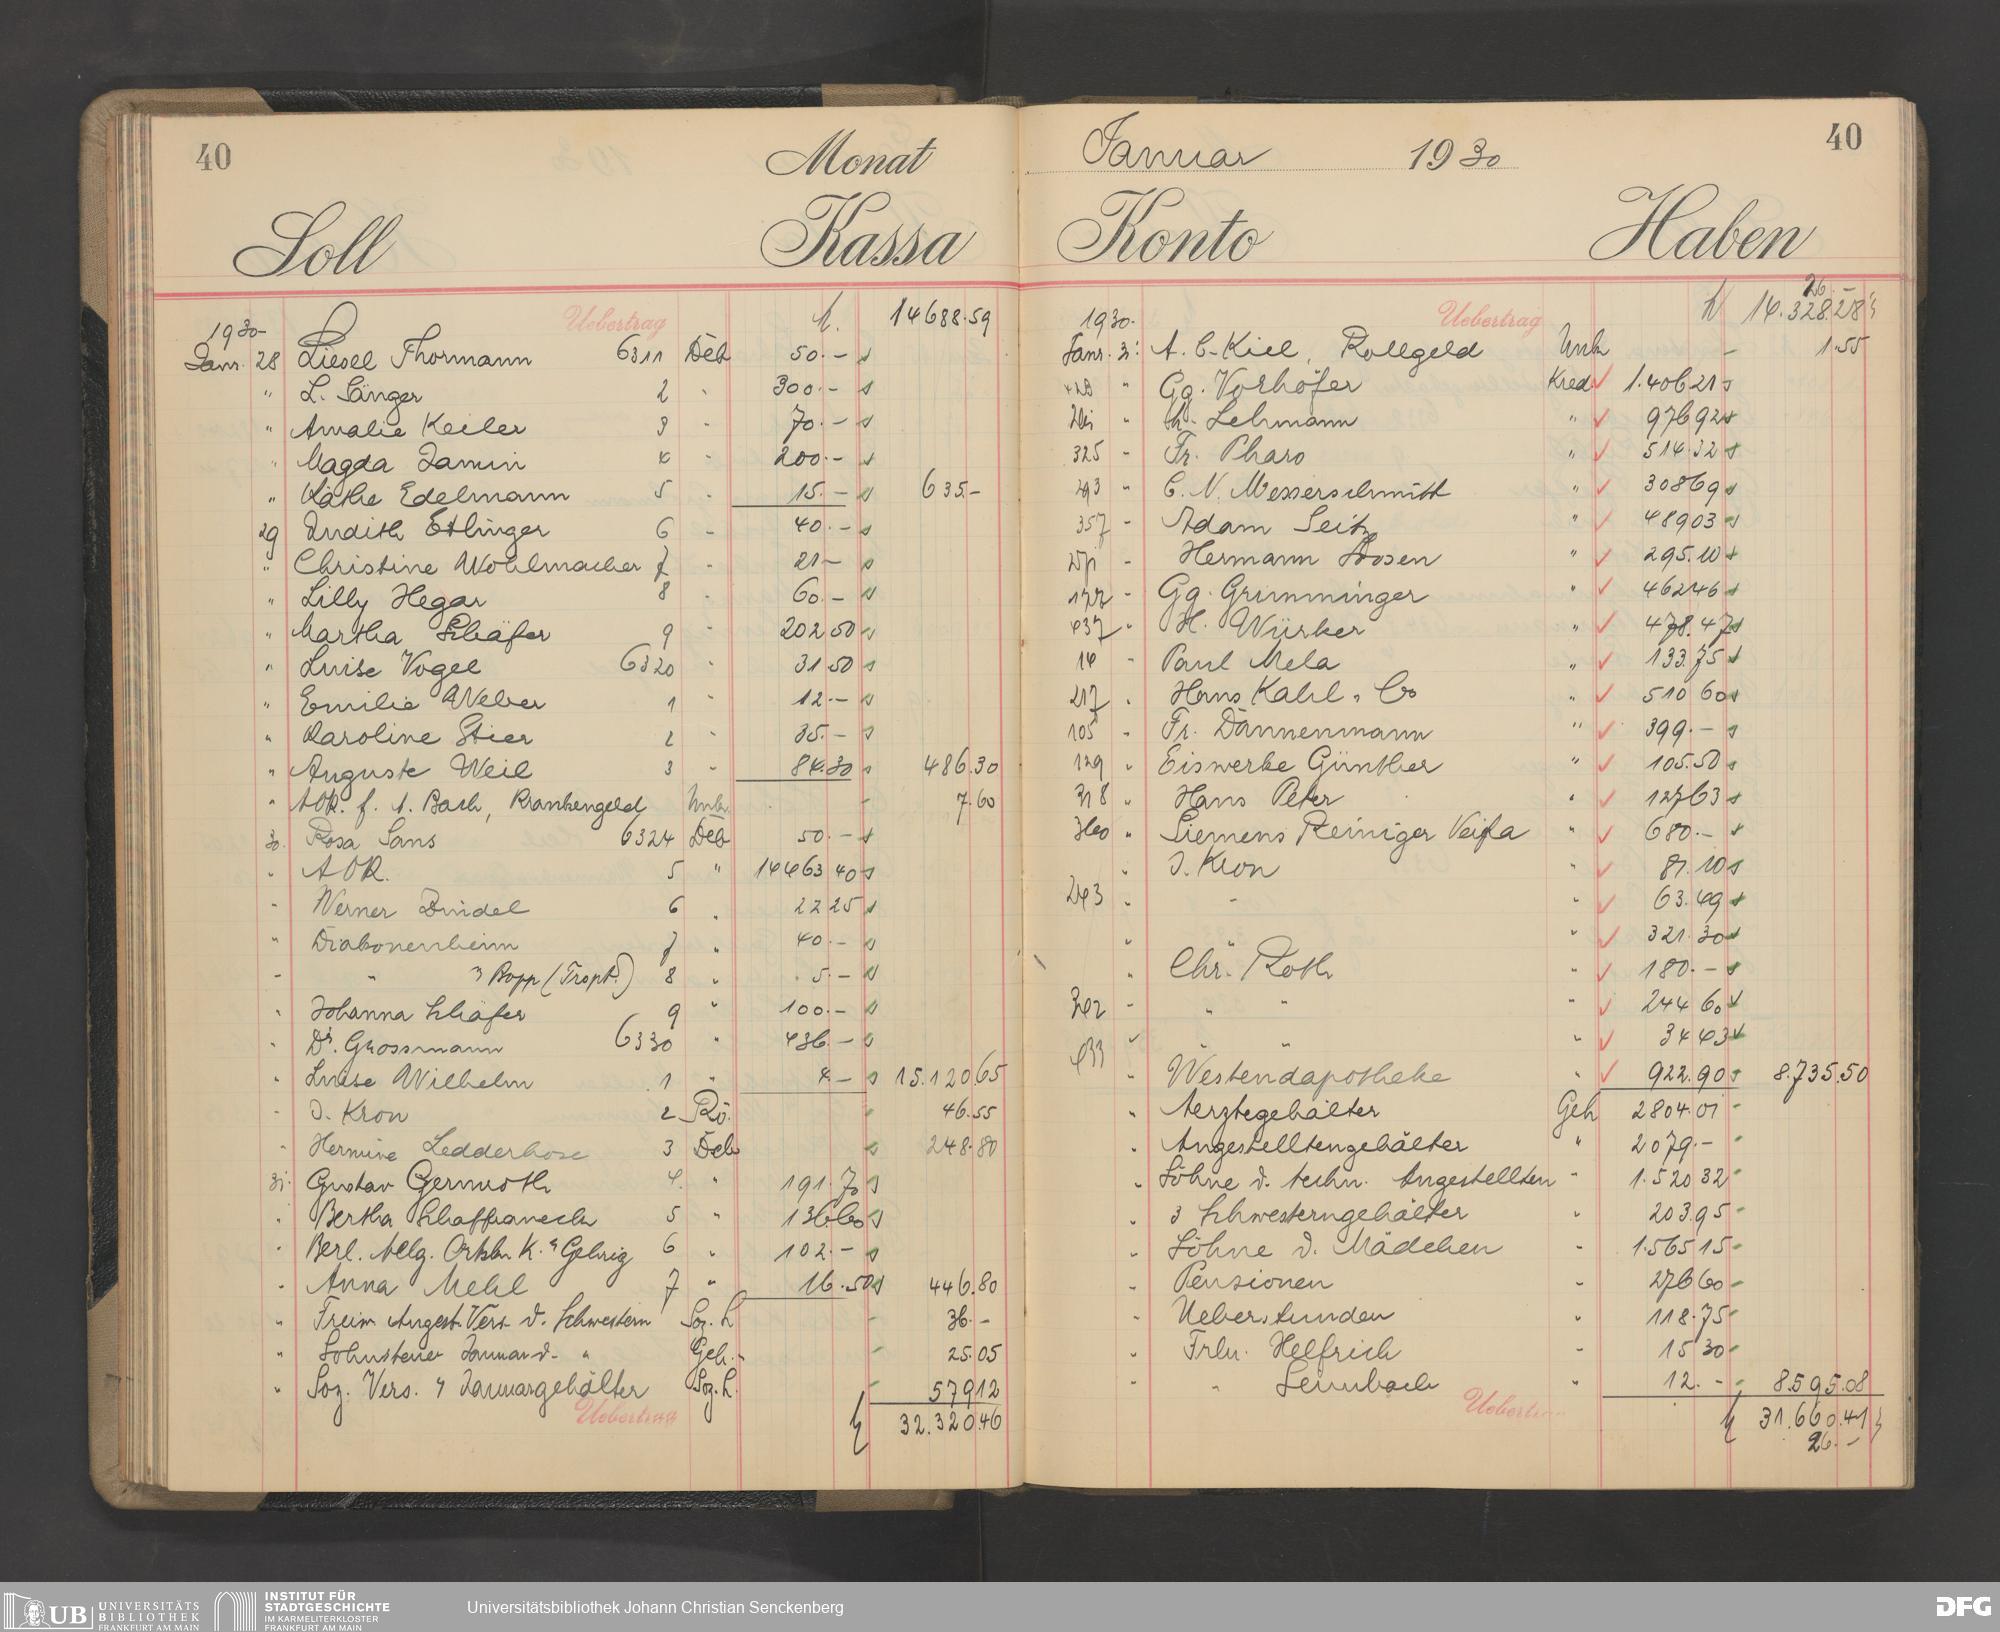 40
Monat
Soll Kassa
1930 Uebertrag 14688.59
Janr. 28 Liesel Thormann 6311 Deb 50.-
" L. Sänger 2 " 300.-
" Amalie Keiler 3 " 70.-
" Magda Jamin 4 " 200.-
" Käthe Edelmann 5 " 15.- 635.-
29 Judith Ettlinger 6 " 40.-
" Christine Wohlmacher 7 " 21.-
" Lilly Hegar 8 " 60.-
" Martha Schäfer 9 " 202.50
" Luise Vogel 6320 " 31.50
" Emilie Weber 1 " 12.-
" Karoline Stier 2 " 35.-
" Auguste Weil 3 " 84.30 486.30
" AOK. f. A. Bach, Krankengeld Unk. 7.60
30. Rosa Sans 6324 Deb 50.-
" AOK. 5 " 14463.40
" Werner Dindel 6 " 22.25
" Diakonenheim 7 " 40.-
" " Bopp 8 " 5.-
" Johanna Schäfer 9 " 100.-
" Dr. Grossmann 6330 " 436.-
" Luise Wilhelm 1 " 4.- 15.120.65
" J. Kron 2 Rö. 46.55
" Hermine Ledderhose 3 Deb 248.80
31. Gustav Germroth 4. " 191.70
" Bertha Schaffraneck 5 " 136.60
" Berl. Allg. K. Gehrig 6 " 102.-
" Anna Mehl 7 " 16.50 446.80
" Freiw. Angest. Vers. d. Schwestern Soz. L 36.-
" Lohnsteuer Januar d. " Geh. 25.05
" Soz. Vers. Januargehälter Soz. L. 579.12
Uebertrag 32.320.46
40
Januar 1930
Konto Haben
26.-
1930. Uebertrag 14.328.28
Janr. 31 A. C. Kiel, Rollgeld Unk 1.55
" Gg. Vorhöfer Kred. 1.406.21
" Lehmann " 976.92
325 " Fr. Pharo " 514.32
293 " C. N. Messerschmitt " 308.69
357 " Adam Seitz " 489.03
" Hermann Stosen " 295.10
177 " Gg. Grimminger " 462.46
437 " H. Würker " 478.47
14 " Paul Mela " 133.75
217 " Hans Kahl & Co " 510.60
105 " Fr. Dannenmann " 399.-
129 " Eiswerke Günther " 105.50
318 " Hans Peter " 127.63
360 " Siemens Reiniger Veifa " 680.-
" J. Kron " 81.10
243 " " " 63.49
" " " 321.30
" Chr. Roth " 180.-
342 " " " " 244.60
433 " " " " 34.43
" Westendapotheke " 922.90 8.735.50
" Aerztegehälter Geh 2804.01
" Angestelltengehälter " 2079.-
" Löhne d. techn. Angestellten " 1.520.32
" 3 Schwesterngehälter " 203.95
" Löhne d. Mädchen " 1.565.15
" Pensionen " 276.60
" Ueberstunden " 118.75
" Frln. Helfrich " 15.30
" " Leimbach " 12.- 8.595.08
Uebertrag 31.660.41
26.-
UB UNIVERSITÄTS
BIBLIOTHEK
FRANKFURT AM MAIN
INSTITUT FÜR
STADTGESCHICHTE
IM KARMELITERKLOSTER
FRANKFURT AM MAIN
Universitätsbibliothek Johann Christian Senckenberg
DFG